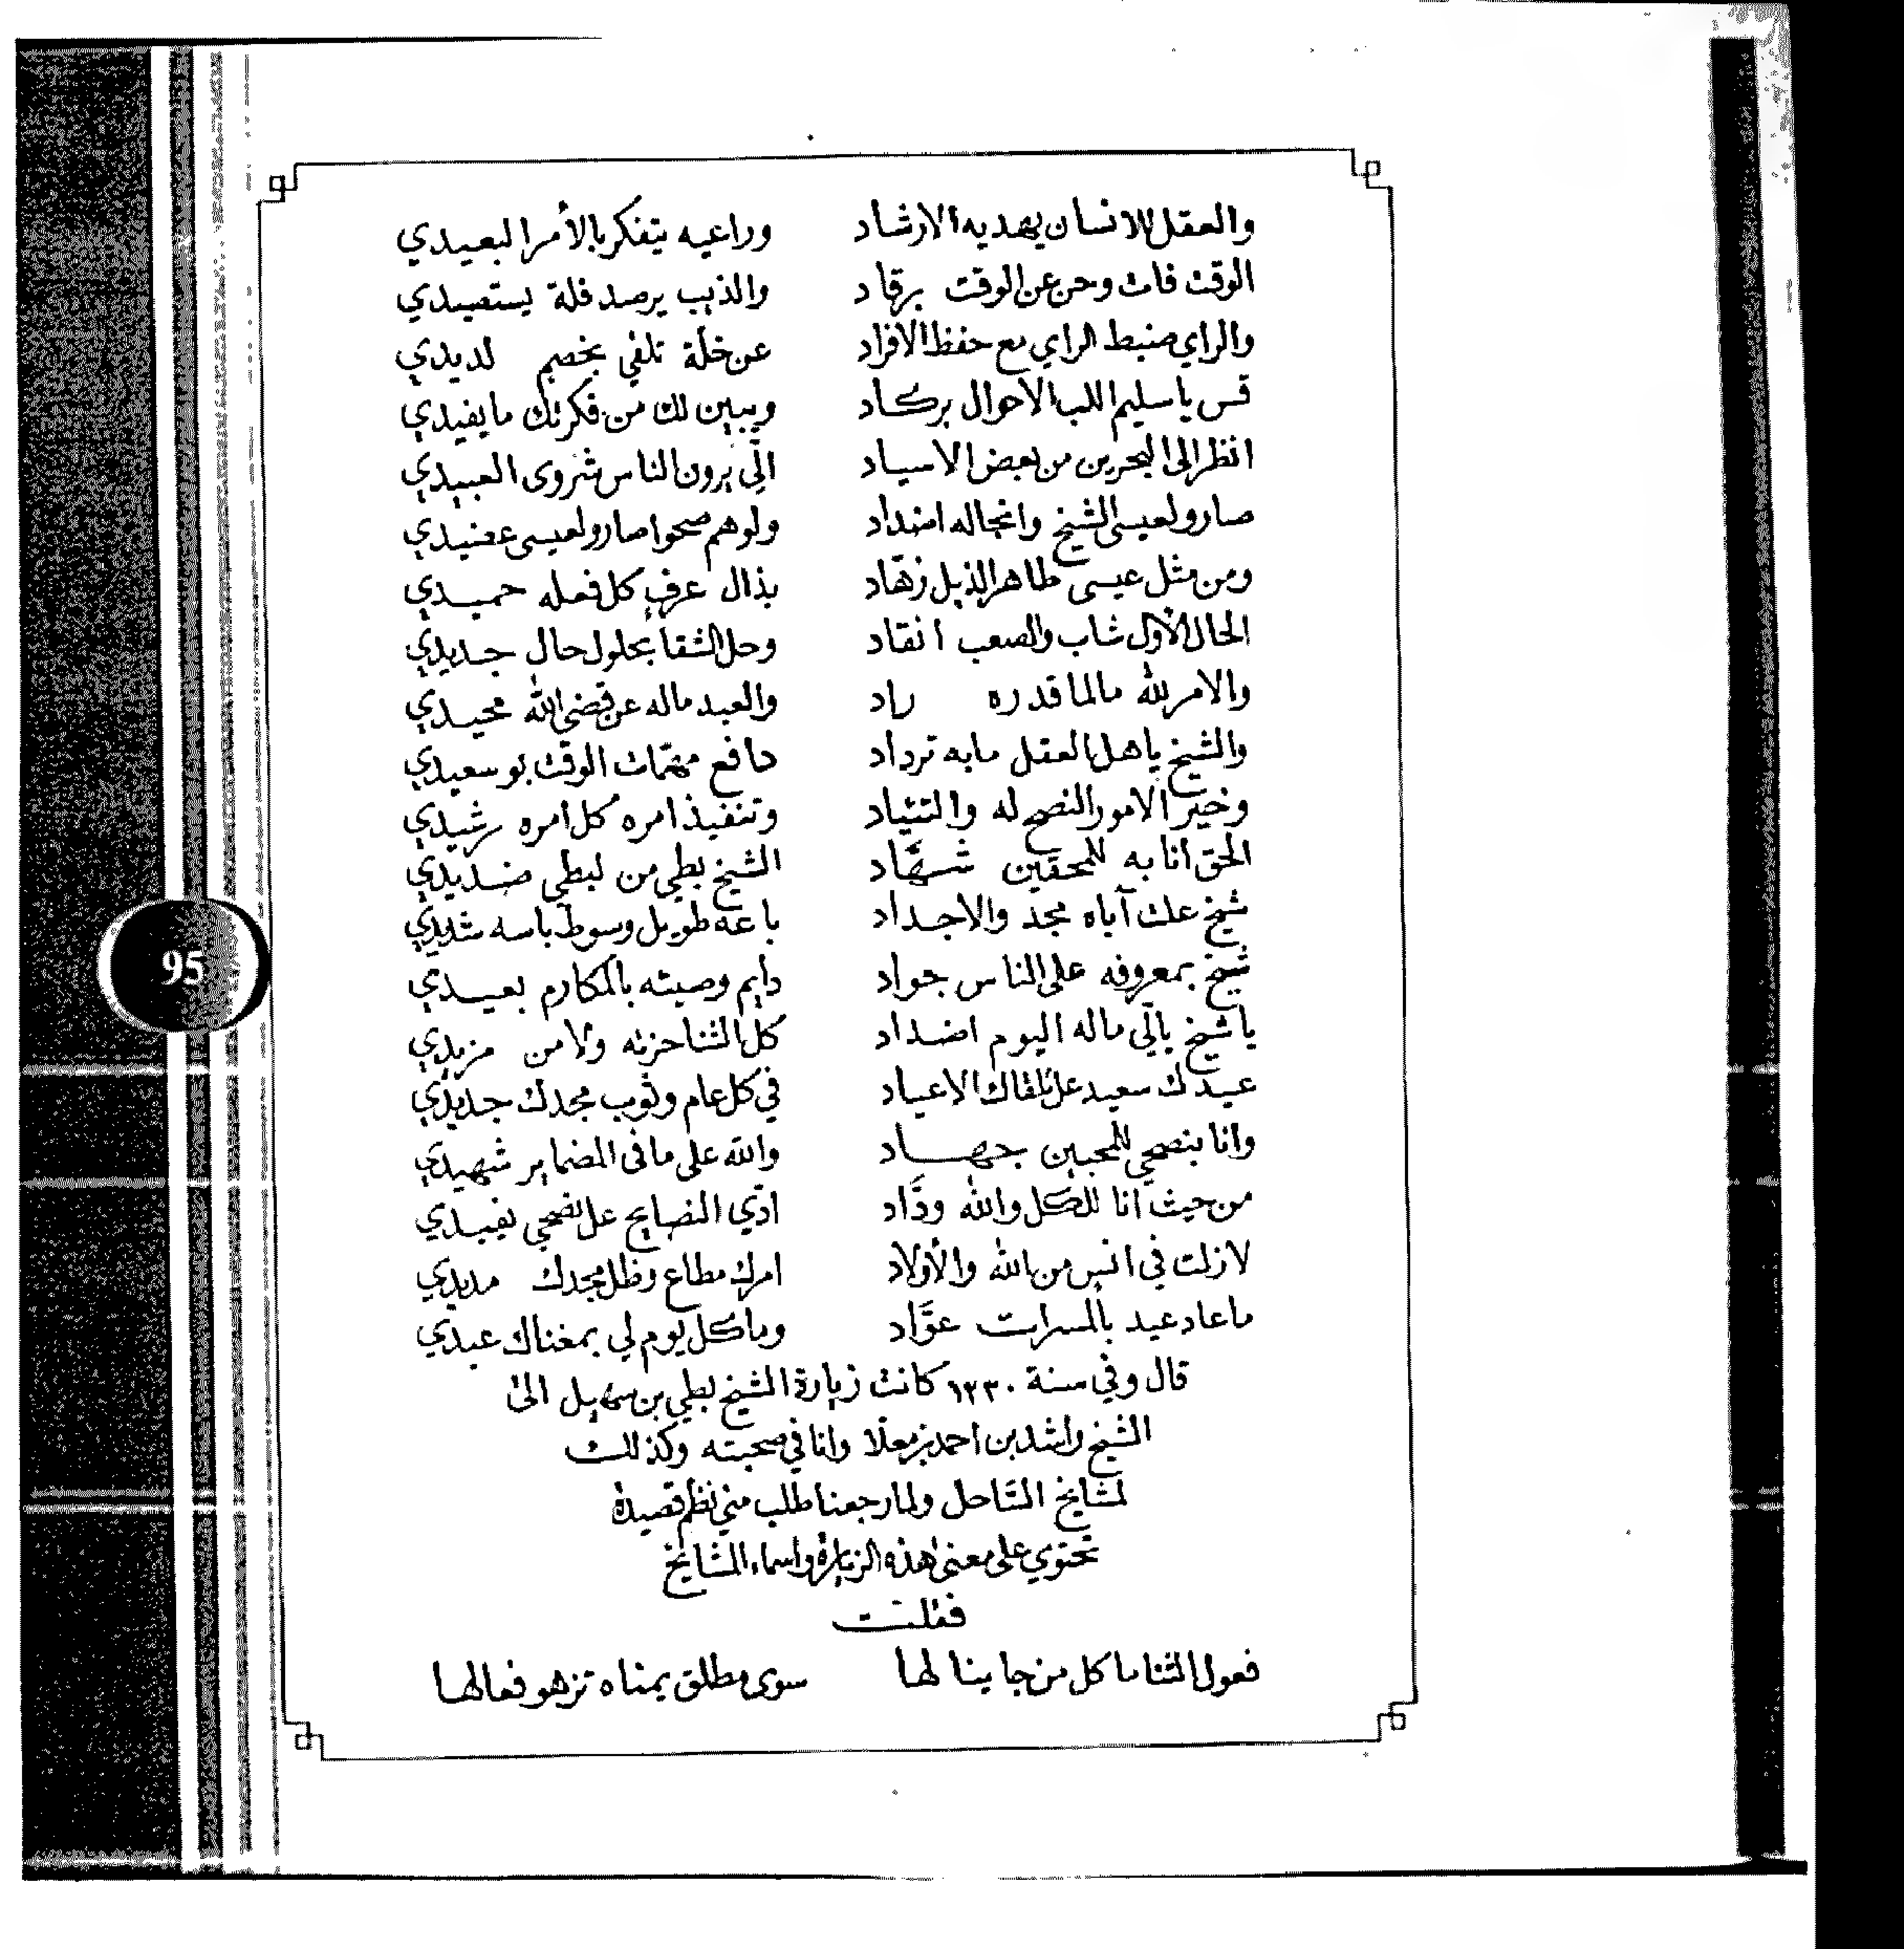 والعقل للانسان يهديه الارشاد وراعيه يتفكر بالأمر البعيدي
الوقت فات وحن عن الوقت برقاد والذيب يرصد فلة يستصيدي
والراي ضبط الراي مع حفظ الافراد عن خلة تلفي بخصم لديدي
قس يا سليم اللب الاحوال بركاد ويبين لك من فكرتك ما يفيدي
انظر الى البحرين من بعض الاسياد الّي يرون الناس شروى العبيدي
صارو لعيسى الشيخ وانجاله اضداد ولوهم صحوا صارو لعيسى عضيدي
ومن مثل عيسى طاهر الذيل زهّاد بذال عرفٍ كل فعله حميدي
الحال الأول شاب والصعب انقاد وحل الشقا بحلول حال جديدي
والامر لله مالما قدره راد والعبد ماله عن قضى الله محيدي
والشيخ ياهل العقل مابه ترداد دافع مهمّات الوقت بو سعيدي
وخير الامور النصح له والتئياد وتنفيذ امره كل امره رشيدي
الحق انا به للمحقين شهّاد الشيخ بطي من لبطي ضديدي
شيخ علت آباه مجد والاجداد باعه طويل وسوط باسه شديدي
شيخ بمعروفه على الناس جواد دايم وصيته بالمكارم بعيدي
يا شيخ يالّي ماله اليوم اضداد كل الثنا حزته ولا من مزيدي
عيدك سعيد عل تلقاك الاعياد في كل عام وثوب مجدك جديدي
وانا بنصحي للمحبين جهاد والله على ما في الضماير شهيدي
من حيث انا للكل والله ودّاد ادّي النصايح عل نصحي يفيدي
لا زلت في انس من الله والأولاد امرك مطاع وظل مجدك مديدي
ما عاد عيد بالمسرات عوّاد وما كل يوم لي بمغناك عيدي
قال وفي سنة ١٣٣٠ كانت زيارة الشيخ بطي بن سهيل الى
الشيخ راشد بن احمد بن معلا وانا في صحبته وكذلك
لمشايخ السّاحل ولما رجعنا طلب مني نظم قصيدة
تحتوي على معنى هذه الزيارة واسماء المشايخ
فقلت
فعول الثنا ما كل من جا ينالها سوى مطلق يمناه تزهو فعالها
95